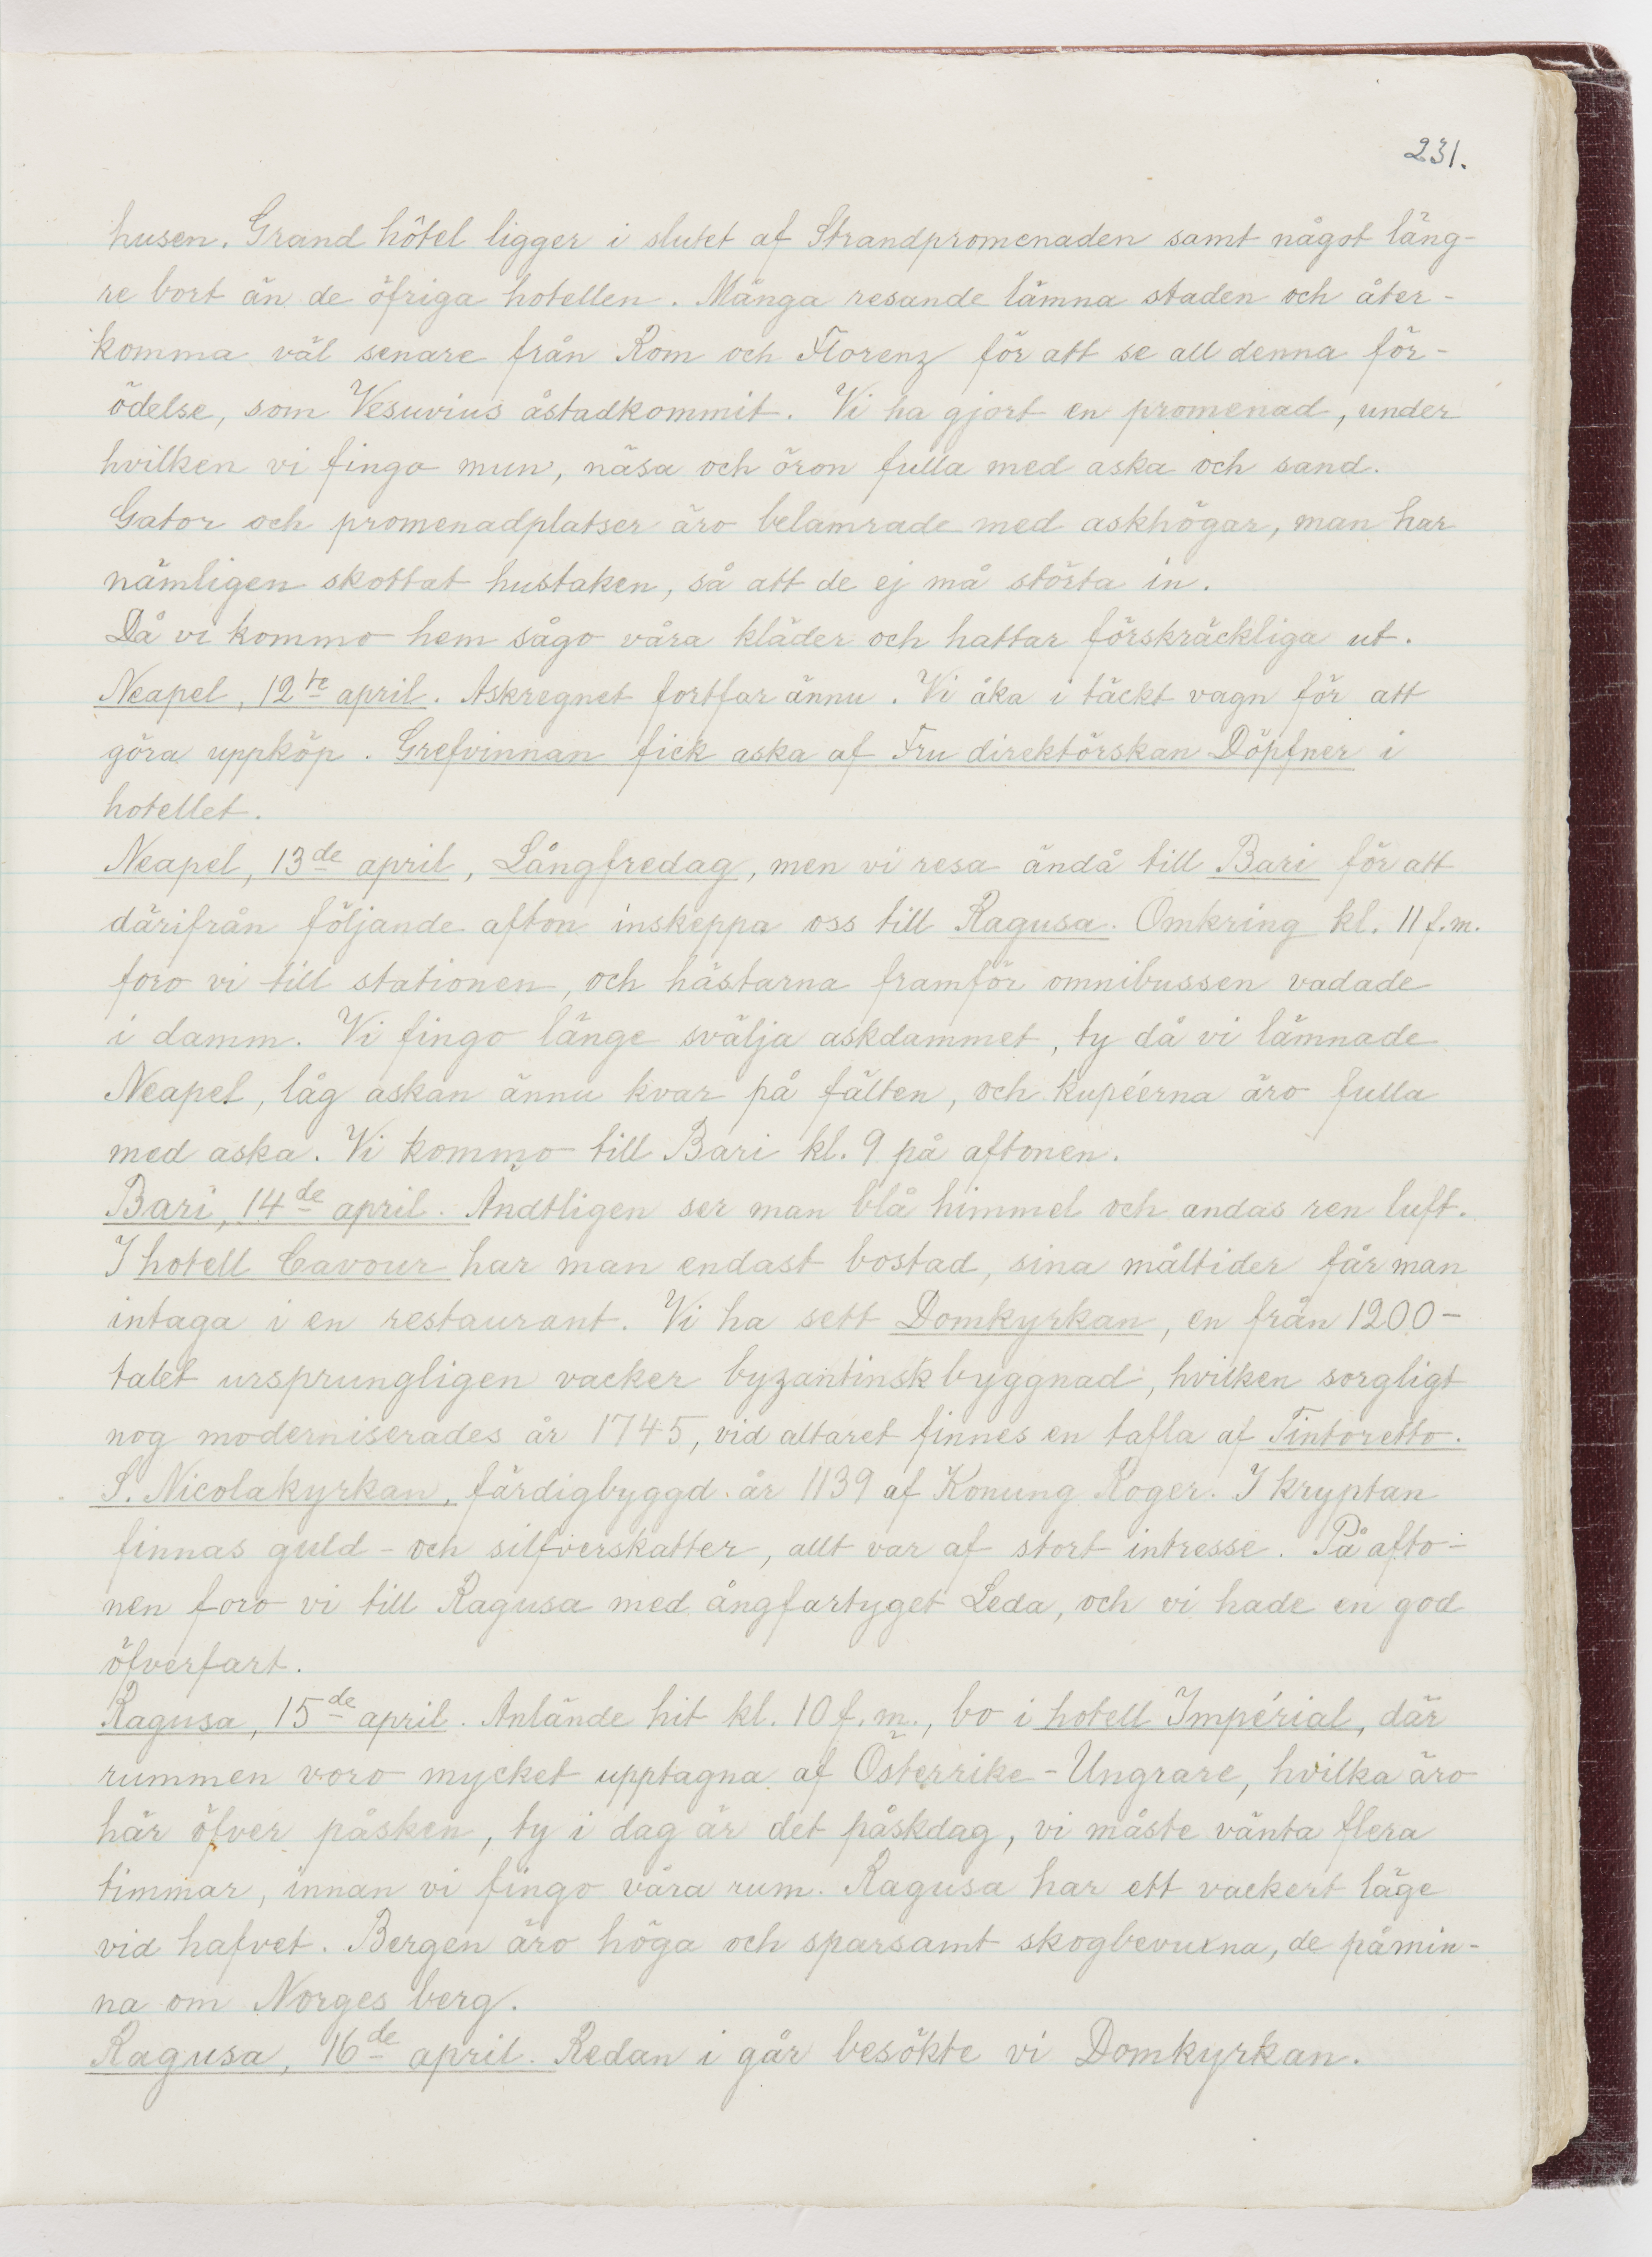 231.
husen. Grand hôtel ligger i slutet af Strandpromenaden samt något läng-
re bort än de öfriga hotellen. Många resande lämna staden och åter-
komma väl senare från Rom och Florenz för att se all denna för-
ödelse, som Vesuvius åstadkommit. Vi ha gjort en promenad, under
hvilken vi fingo mun, näsa och öron fulla med aska och sand.
Gator och promenadplatser äro belamrade med askhögar, man har
nämligen skottat hustaken, så att de ej må störta in.
Då vi kommo hem sågo våra kläder och hattar förskräckliga ut.
Neapel, 12te april. Askregnet fortfar ännu. Vi åka i täckt vagn för att
göra uppköp. Grefvinnan fick aska af Fru direktörskan Döpfner i
hotellet.
Neapel, 13de april, Långfredag, men vi resa ändå till Bari för att
därifrån följande afton inskeppa oss till Ragusa. Omkring kl. 11 f.m.
foro vi till stationen, och hästarna framför omnibussen vadade
i damm. Vi fingo länge svälja askdammet, ty då vi lämnade
Neapel, låg askan ännu kvar på fälten, och kupéerna äro fulla
med aska. Vi kommo till Bari kl. 9 på aftonen.
Bari, 14de april. Ändtligen ser man blå himmel och andas ren luft.
I hotell Cavour har man endast bostad, sina måltider får man
intaga i en restaurant. Vi ha sett Domkyrkan, en från 1200-
talet ursprungligen vacker byzantinsk byggnad, hvilken sorgligt
nog moderniserades år 1745, vid altaret finnes en tafla af Tintoretto.
S. Nicolakyrkan, färdigbyggd år 1139 af Konung Roger. I kryptan
finnas guld- och silfverskatter, allt var af stort intresse. På afto-
nen foro vi till Ragusa med ångfartyget Leda, och vi hade en god
öfverfart.
Ragusa, 15de april. Anlände hit kl. 10 f.m., bo i hotell Impérial, där
rummen voro mycket upptagna af Österrike-Ungrare, hvilka äro
här öfver påsken, ty i dag är det påskdag, vi måste vänta flera
timmar, innan vi fingo våra rum. Ragusa har ett vackert läge
vid hafvet. Bergen äro höga och sparsamt skogbevuxna, de påmin-
na om Norges berg.
Ragusa, 16de april. Redan i går besökte vi Domkyrkan.